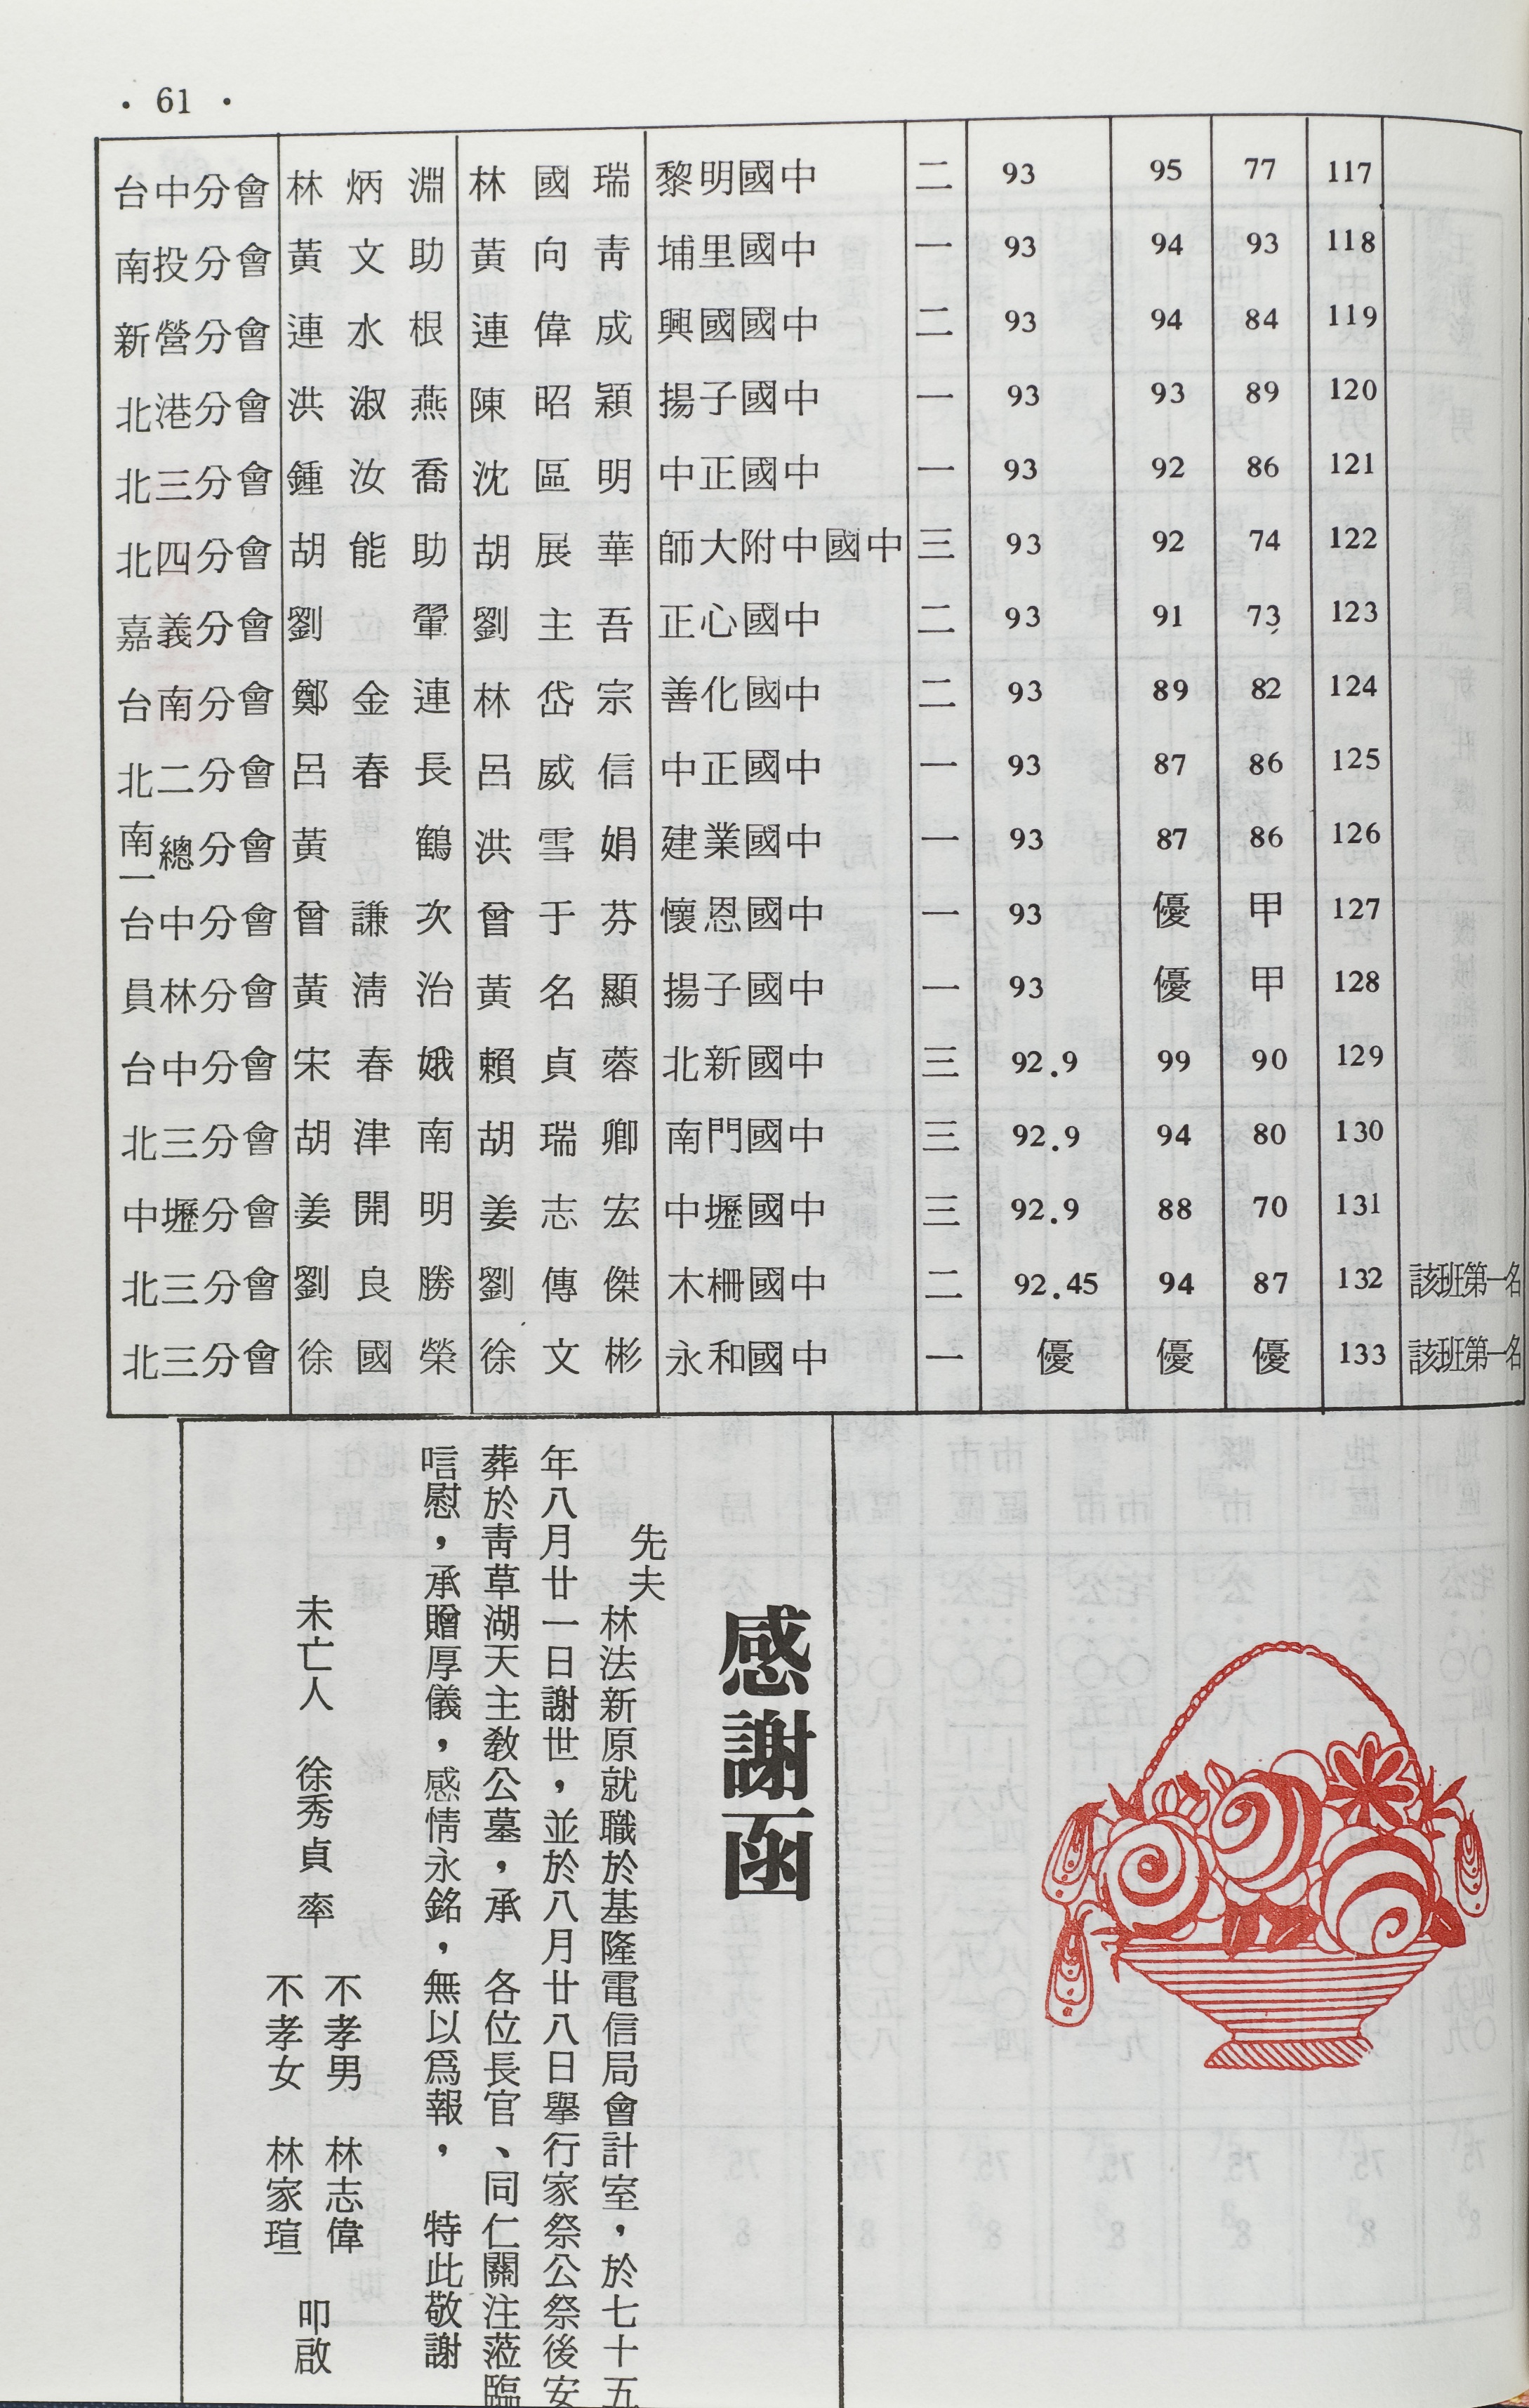 · 61 ·
台中分會 林炳淵 林國瑞 黎明國中 二 93 95 77 117
南投分會 黃文助 黃向靑 埔里國中 一 93 94 93 118
新營分會 連水根 連偉成 興國國中 二 93 94 84 119
北港分會 洪淑燕 陳昭穎 揚子國中 一 93 93 89 120
北三分會 鍾汝喬 沈區明 中正國中 一 93 92 86 121
北四分會 胡能助 胡展華 師大附中國中 三 93 92 74 122
嘉義分會 劉翬 劉主吾 正心國中 二 93 91 73 123
台南分會 鄭金連 林岱宗 善化國中 二 93 89 82 124
北二分會 呂春長 呂威信 中正國中 一 93 87 86 125
南一總分會 黃鶴 洪雪娟 建業國中 一 93 87 86 126
台中分會 曾謙次 曾于芬 懷恩國中 一 93 優 甲 127
員林分會 黃淸治 黃名顯 揚子國中 一 93 優 甲 128
台中分會 宋春娥 賴貞蓉 北新國中 三 92.9 99 90 129
北三分會 胡津南 胡瑞卿 南門國中 三 92.9 94 80 130
中壢分會 姜開明 姜志宏 中壢國中 三 92.9 88 70 131
北三分會 劉良勝 劉傳傑 木柵國中 二 92.45 94 87 132 該班第一名
北三分會 徐國榮 徐文彬 永和國中 一 優 優 優 133 該班第一名
感謝函
先夫
林法新原就職於基隆電信局會計室，於七十五
年八月廿一日謝世，並於八月廿八日舉行家祭公祭後安
葬於靑草湖天主敎公墓，承　各位長官、同仁關注蒞臨
唁慰，承贈厚儀，感情永銘，無以爲報，　特此敬謝
未亡人　徐秀貞　率
不孝男　林志偉
不孝女　林家瑄
叩啟